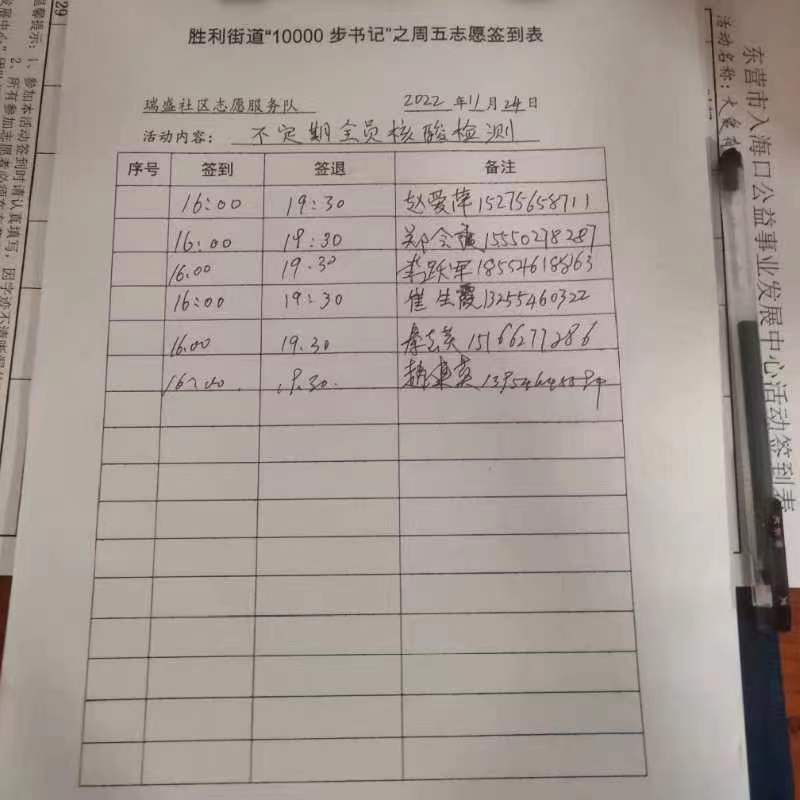 胜利街道“10000 步书记”之周五志愿签到表
瑞盛社区志愿服务队 2022 年 11 月 24 日
活动内容： 不定期全员核酸检测
序号 签到 签退 备注
16:00 19:30 赵爱萍 15275658711
16:00 19:30 郑 15550278287
16.00 19.30 李跃军 18554618863
16:00 19:30 崔生霞 13255460322
16.00 19.30 15166277286
16:00 19.30.
东营市入海口公益事业发展中心活动签到表
活动名称：
温馨提示：1、参加本活动签到时请认真填写，因字迹不清晰
2、所有参加志愿者必须在
29